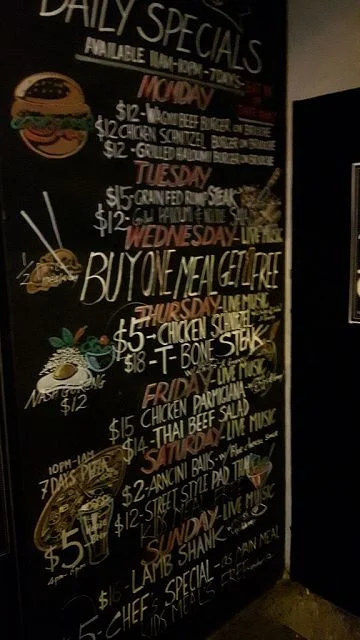 DAILY SPECIALS
AVAILABLE 11AM-10PM-7DAYS
MONDAY
$12-WAGYU BEEF BURGER ON BRIOCHE
$12 CHICKEN SCHNITZEL BURGER ON BRIOCHE
$12-GRILLED HALOUMI BURGER ON BRIOCHE
TUESDAY
$15-GRAIN FED RUMP STEAK
$12- HALOUMI &
WEDNESDAY-LIVE MUSIC
BUY ONE MEAL GET 1/2 FREE
THURSDAY-LIVE MUSIC
$5-CHICKEN SCHNITZEL
$18-T-BONE STEAK
NASI GORENG
$12
FRIDAY-LIVE MUSIC
$15 CHICKEN PARMIGIANA
$14-THAI BEEF SALAD
SATURDAY-LIVE MUSIC
$2-ARNCINI BALLS-W/ Blue cheese sauce
$12-STREET STYLE PAD THAI
10PM-1AM
7 DAYS PIZZA
$5
4pm-
SUNDAY-LIVE MUSIC
LAMB SHANK
CHEF'S SPECIAL-AS MAIN MEAL
KIDS MEALS FREE